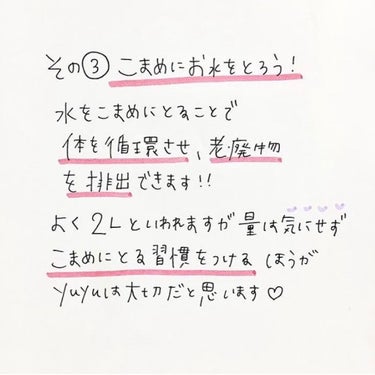 その③ こまめにお水をとろう!
水をこまめにとることで
体を循環させ、老廃物
を排出できます!!
よく2Lといわれますが量は気にせず
こまめにとる習慣をつけるほうが
yuyuは大切だと思います♡